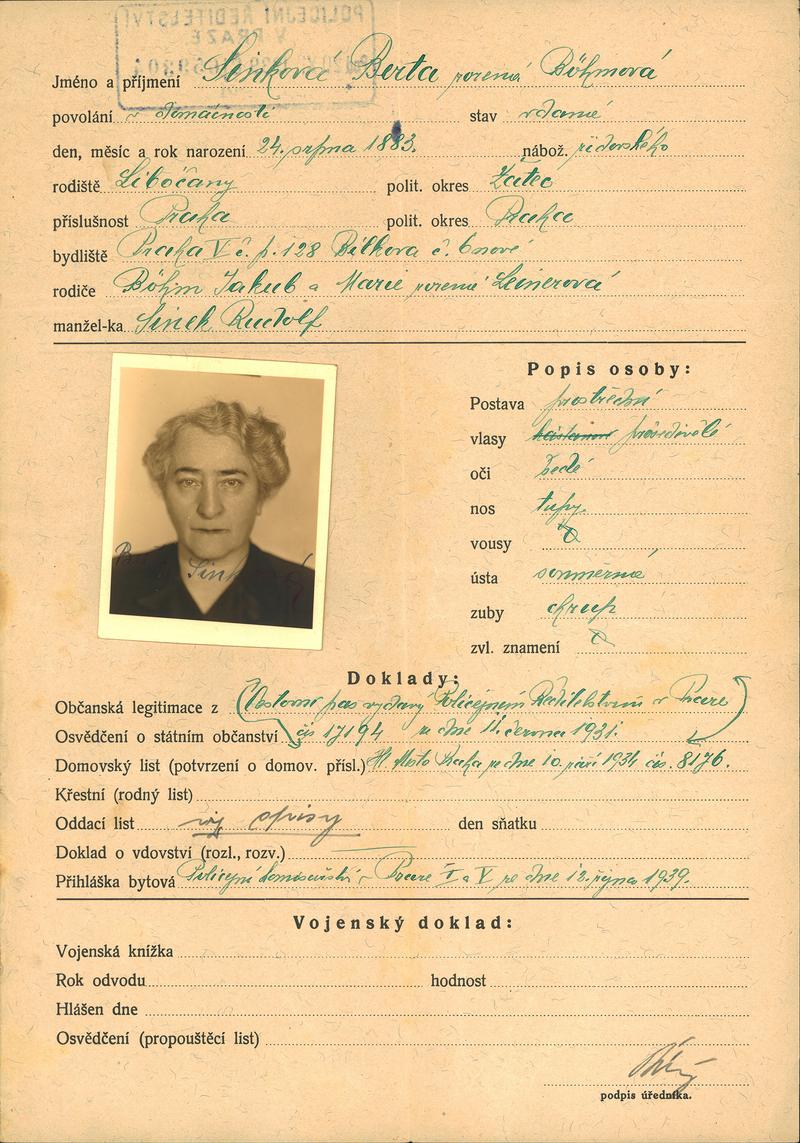 POLICEJNÍ ŘEDITELSTVÍ
V PRAZE
Jméno a příjmení Sinková Berta rozená Böhmová
povolání v domácnosti stav vdaná
den, měsíc a rok narození 24. srpna 1883. nábož. židovského
rodiště Libočany polit. okres Žatec
příslušnost Praha polit. okres Praha
bydliště Praha V č. p. 128 Bílkova č. 6 nové
rodiče Böhm Jakub a Marie rozená Leinerová
manžel-ka Sinek Rudolf
Popis osoby:
Postava prostřední
vlasy prošedivělé
oči šedé
nos tupý
vousy
ústa souměrná
zuby chrup
zvl. znamení
Doklady:
Občanská legitimace z Cestovní pas vydaný Policejním ředitelstvím v Praze
Osvědčení o státním občanství čís 17194 ze dne 11. června 1931.
Domovský list (potvrzení o domov. přísl.) Hl. Město Praha ze dne 10. září 1934 čís. 8176.
Křestní (rodný list)
Oddací list viz spisy den sňatku
Doklad o vdovství (rozl., rozv.)
Přihláška bytová Policejní komisařství v Praze I a V ze dne 12. října 1939.
Vojenský doklad:
Vojenská knížka
Rok odvodu hodnost
Hlášen dne
Osvědčení (propouštěcí list)
podpis úředníka.